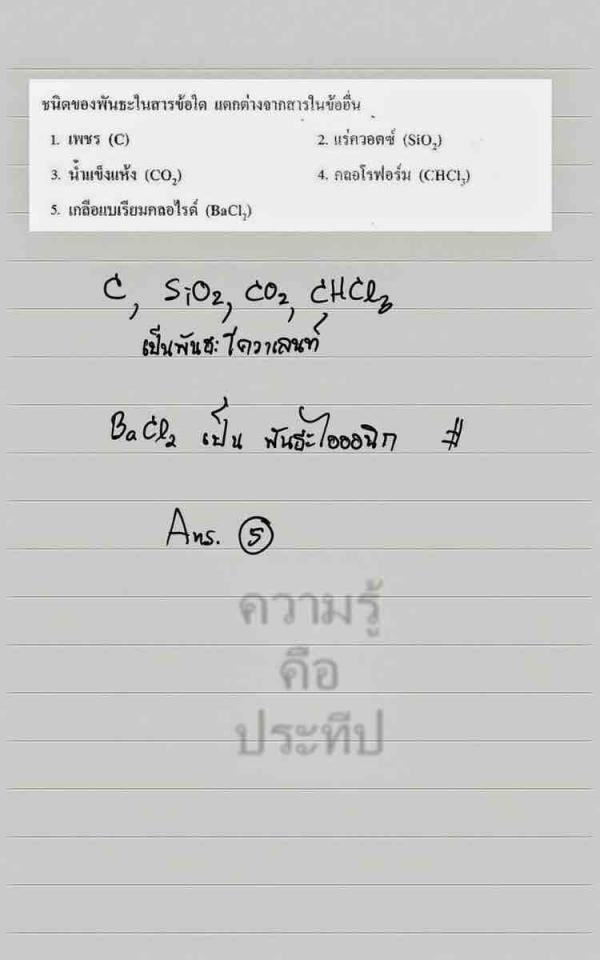 ชนิดของพันธะในสารข้อใด แตกต่างจากสารในข้ออื่น
1. เพชร (C) 2. แร่ควอตซ์ (SiO₂)
3. น้ำแข็งแห้ง (CO₂) 4. คลอโรฟอร์ม (CHCl₃)
5. เกลือแบเรียมคลอไรด์ (BaCl₂)
C, SiO₂, CO₂, CHCl₃
เป็นพันธะโควาเลนท์
BaCl₂ เป็น พันธะไอออนิก #
Ans. ⑤
ความรู้
คือ
ประทีป